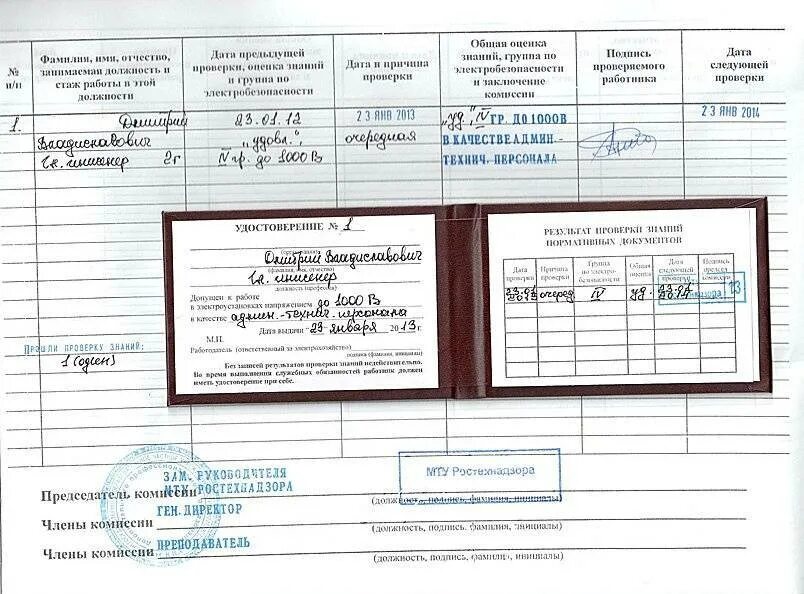 № п/п
Фамилия, имя, отчество, занимаемая должность и стаж работы в этой должности
Дата предыдущей проверки, оценка знаний и группа по электробезопасности
Дата и причина проверки
Общая оценка знаний, группа по электробезопасности и заключение комиссии
Подпись проверяемого работника
Дата следующей проверки
1. Дмитрий 23.01.12 23 ЯНВ 2013 "уд.", IV ГР. ДО 1000В 23 ЯНВ 2014
Владиславович "удовл." очередная В КАЧЕСТВЕ АДМИН.-
Гл. инженер 2г IV гр. до 1000 В ТЕХНИЧ. ПЕРСОНАЛА
УДОСТОВЕРЕНИЕ № 1
Дмитрий Владиславович
(фамилия, имя, отчество)
Гл. инженер
должность (профессия)
Допущен к работе
в электроустановках напряжением до 1000 В
в качестве админ.-технич. персонала
Дата выдачи "23" января 2013 г.
М.П.
Работодатель (ответственный за электрохозяйство)
подпись (фамилия, инициалы)
Без записей результатов проверки знаний недействительно.
Во время выполнения служебных обязанностей работник должен
иметь удостоверение при себе.
РЕЗУЛЬТАТ ПРОВЕРКИ ЗНАНИЙ
НОРМАТИВНЫХ ДОКУМЕНТОВ
Дата проверки
Причина проверки
Группа по электробезопасности
Общая оценка
Дата следующей проверки
Подпись председ. комиссии
23.01 2013 очеред IV уд. 23.01 2014
13
ПРОШЛИ ПРОВЕРКУ ЗНАНИЙ:
1 (один)
ЗАМ. РУКОВОДИТЕЛЯ
МТУ РОСТЕХНАДЗОРА
МТУ Ростехнадзора
Председатель комиссии
(должность, подпись, фамилия, инициалы)
ГЕН. ДИРЕКТОР
Члены комиссии
(должность, подпись, фамилия, инициалы)
Члены комиссии ПРЕПОДАВАТЕЛЬ
(должность, подпись, фамилия, инициалы)